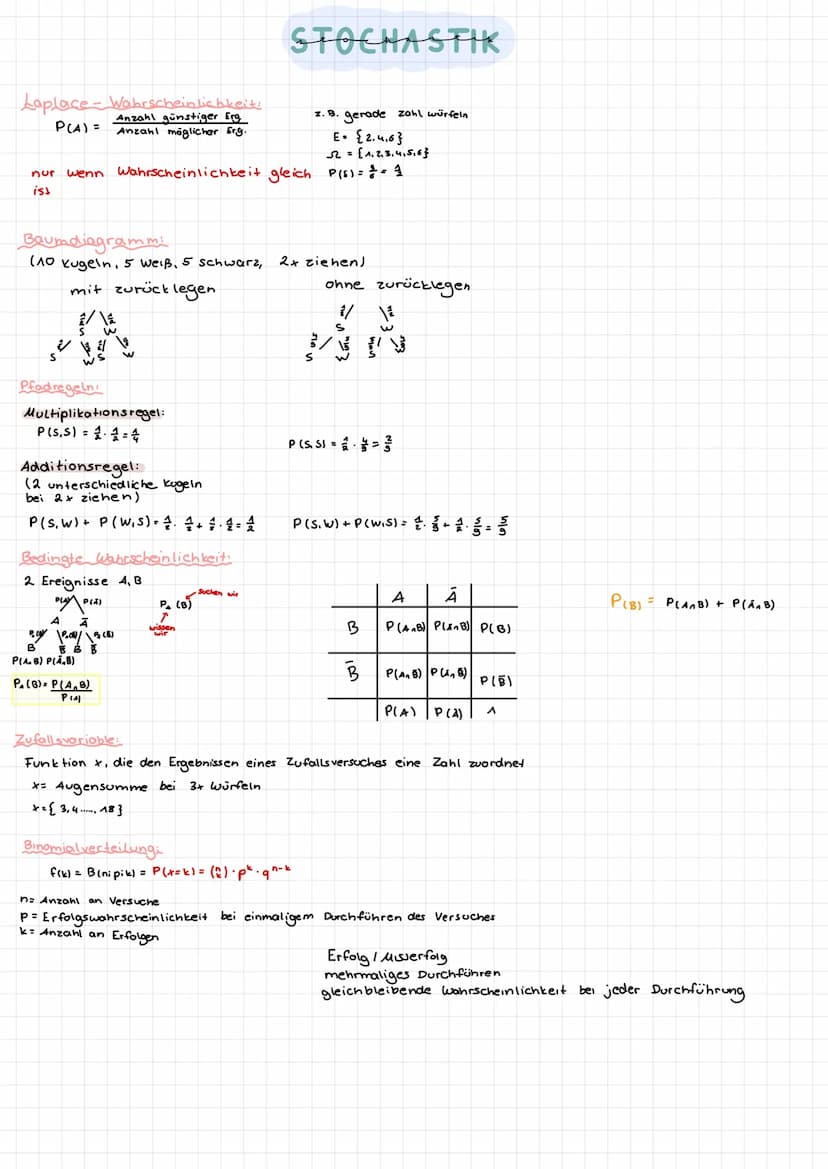 STOCHASTIK
Laplace - Wahrscheinlichkeit:
P(A) = Anzahl günstiger Erg. / Anzahl möglicher Erg.
z.B. gerade Zahl würfeln
E = {2,4,6}
Ω = {1,2,3,4,5,6}
nur wenn Wahrscheinlichkeit gleich ist
P(E) = 3/6 = 1/2
Baumdiagramm:
(10 Kugeln, 5 weiß, 5 schwarz, 2x ziehen)
mit zurücklegen
1/2 1/2
S W
S W S W
ohne zurücklegen
1/2 1/2
S W
4/9 5/9 5/9 4/9
S W S W
Pfadregeln:
Multiplikationsregel:
P(S,S) = 1/2 · 1/2 = 1/4
P(S,S) = 1/2 · 4/9 = 2/9
Additionsregel:
(2 unterschiedliche Kugeln
bei 2x ziehen)
P(S,W) + P(W,S) = 1/2 · 1/2 + 1/2 · 1/2 = 1/2
P(S,W) + P(W,S) = 1/2 · 5/9 + 1/2 · 5/9 = 5/9
Bedingte Wahrscheinlichkeit:
2 Ereignisse A, B
P(A) P(Ā)
A Ā
B B̄ B B̄
P(A∩B) P(Ā∩B)
P_A(B) = P(A∩B) / P(A)
suchen wir
P_A (B)
wissen
wir
A Ā
B P(A∩B) P(Ā∩B) P(B)
B̄ P(A∩B̄) P(Ā∩B̄) P(B̄)
P(A) P(Ā) 1
P(B) = P(A∩B) + P(Ā∩B)
Zufallsvariable:
Funktion x, die den Ergebnissen eines Zufallsversuches eine Zahl zuordnet
x = Augensumme bei 3x würfeln
x = {3,4....., 18}
Binomialverteilung:
f(k) = B(n;p;k) = P(x=k) = (n k) · p^k · q^n-k
n = Anzahl an Versuche
p = Erfolgswahrscheinlichkeit bei einmaligem Durchführen des Versuches
k = Anzahl an Erfolgen
Erfolg / Misserfolg
mehrmaliges Durchführen
gleichbleibende Wahrscheinlichkeit bei jeder Durchführung